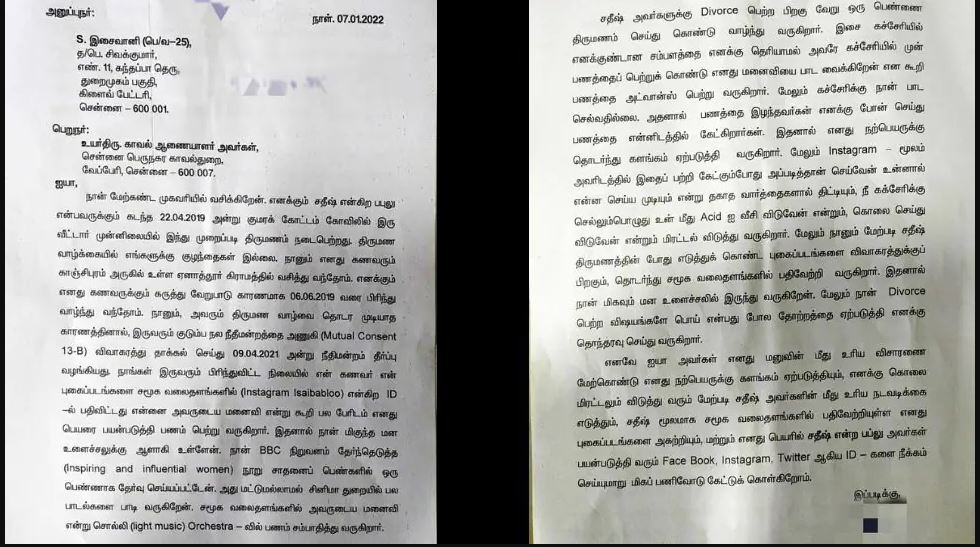 அனுப்புநர்:
நாள். 07.01.2022
S. இசைவாணி (பெ/வ–25),
த/பெ. சிவக்குமார்,
எண். 11, கந்தப்பா தெரு,
துறைமுகம் பகுதி,
கிளைவ் பேட்டரி,
சென்னை – 600 001.
பெறுநர்:
உயர்திரு. காவல் ஆணையாளர் அவர்கள்,
சென்னை பெருநகர காவல்துறை,
வேப்பேரி, சென்னை – 600 007.
ஐயா,
நான் மேற்கண்ட முகவரியில் வசிக்கிறேன். எனக்கும் சதீஷ் என்கிற பப்லு
என்பவருக்கும் கடந்த 22.04.2019 அன்று குமரக் கோட்டம் கோவிலில் இரு
வீட்டார் முன்னிலையில் இந்து முறைப்படி திருமணம் நடைபெற்றது. திருமண
வாழ்க்கையில் எங்களுக்கு குழந்தைகள் இல்லை. நானும் எனது கணவரும்
காஞ்சிபுரம் அருகில் உள்ள ஏனாத்தூர் கிராமத்தில் வசித்து வந்தோம். எனக்கும்
எனது கணவருக்கும் கருத்து வேறுபாடு காரணமாக 06.06.2019 வரை பிரிந்து
வாழ்ந்து வந்தோம். நானும், அவரும் திருமண வாழ்வை தொடர முடியாத
காரணத்தினால், இருவரும் குடும்ப நல நீதிமன்றத்தை அணுகி (Mutual Consent
13-B) விவாகரத்து தாக்கல் செய்து 09.04.2021 அன்று நீதிமன்றம் தீர்ப்பு
வழங்கியது. நாங்கள் இருவரும் பிரிந்துவிட்ட நிலையில் என் கணவர் என்
புகைப்படங்களை சமூக வலைதளங்களில் (Instagram Isaibabloo) என்கிற ID
–ல் பதிவிட்டது என்னை அவருடைய மனைவி என்று கூறி பல பேரிடம் எனது
பெயரை பயன்படுத்தி பணம் பெற்று வருகிறார். இதனால் நான் மிகுந்த மன
உளைச்சலுக்கு ஆளாகி உள்ளேன். நான் BBC நிறுவனம் தேர்ந்தெடுத்த
(Inspiring and influential women) நூறு சாதனைப் பெண்களில் ஒரு
பெண்ணாக தேர்வு செய்யப்பட்டேன். அது மட்டுமல்லாமல் சினிமா துறையில் பல
பாடல்களை பாடி வருகிறேன். சமூக வலைதளங்களில் அவருடைய மனைவி
என்று சொல்லி (light music) Orchestra – வில் பணம் சம்பாதித்து வருகிறார்.
சதீஷ் அவர்களுக்கு Divorce பெற்ற பிறகு வேறு ஒரு பெண்ணை
திருமணம் செய்து கொண்டு வாழ்ந்து வருகிறார். இசை கச்சேரியில்
எனக்குண்டான சம்பளத்தை எனக்கு தெரியாமல் அவரே கச்சேரியில் முன்
பணத்தைப் பெற்றுக் கொண்டு எனது மனைவியை பாட வைக்கிறேன் என கூறி
பணத்தை அட்வான்ஸ் பெற்று வருகிறார். மேலும் கச்சேரிக்கு நான் பாட
செல்வதில்லை. அதனால் பணத்தை இழந்தவர்கள் எனக்கு போன் செய்து
பணத்தை என்னிடத்தில் கேட்கிறார்கள். இதனால் எனது நற்பெயருக்கு
தொடர்ந்து களங்கம் ஏற்படுத்தி வருகிறார். மேலும் Instagram – மூலம்
அவரிடத்தில் இதைப் பற்றி கேட்கும்போது அப்படித்தான் செய்வேன் உன்னால்
என்ன செய்ய முடியும் என்று தகாத வார்த்தைகளால் திட்டியும், நீ கச்சேரிக்கு
செல்லும்பொழுது உன் மீது Acid ஐ வீசி விடுவேன் என்றும், கொலை செய்து
விடுவேன் என்றும் மிரட்டல் விடுத்து வருகிறார். மேலும் நானும் மேற்படி சதீஷ்
திருமணத்தின் போது எடுத்துக் கொண்ட புகைப்படங்களை விவாகரத்துக்குப்
பிறகும், தொடர்ந்து சமூக வலைதளங்களில் பதிவேற்றி வருகிறார். இதனால்
நான் மிகவும் மன உளைச்சலில் இருந்து வருகிறேன். மேலும் நான் Divorce
பெற்ற விஷயங்களே பொய் என்பது போல தோற்றத்தை ஏற்படுத்தி எனக்கு
தொந்தரவு செய்து வருகிறார்.
எனவே ஐயா அவர்கள் எனது மனுவின் மீது உரிய விசாரணை
மேற்கொண்டு எனது நற்பெயருக்கு களங்கம் ஏற்படுத்தியும், எனக்கு கொலை
மிரட்டலும் விடுத்து வரும் மேற்படி சதீஷ் அவர்களின் மீது உரிய நடவடிக்கை
எடுத்தும், சதீஷ் மூலமாக சமூக வலைதளங்களில் பதிவேற்றியுள்ள எனது
புகைப்படங்களை அகற்றியும், மற்றும் எனது பெயரில் சதீஷ் என்ற பப்லு அவர்கள்
பயன்படுத்தி வரும் Face Book, Instagram, Twitter ஆகிய ID – களை நீக்கம்
செய்யுமாறு மிகப் பணிவோடு கேட்டுக் கொள்கிறோம்.
இப்படிக்கு,